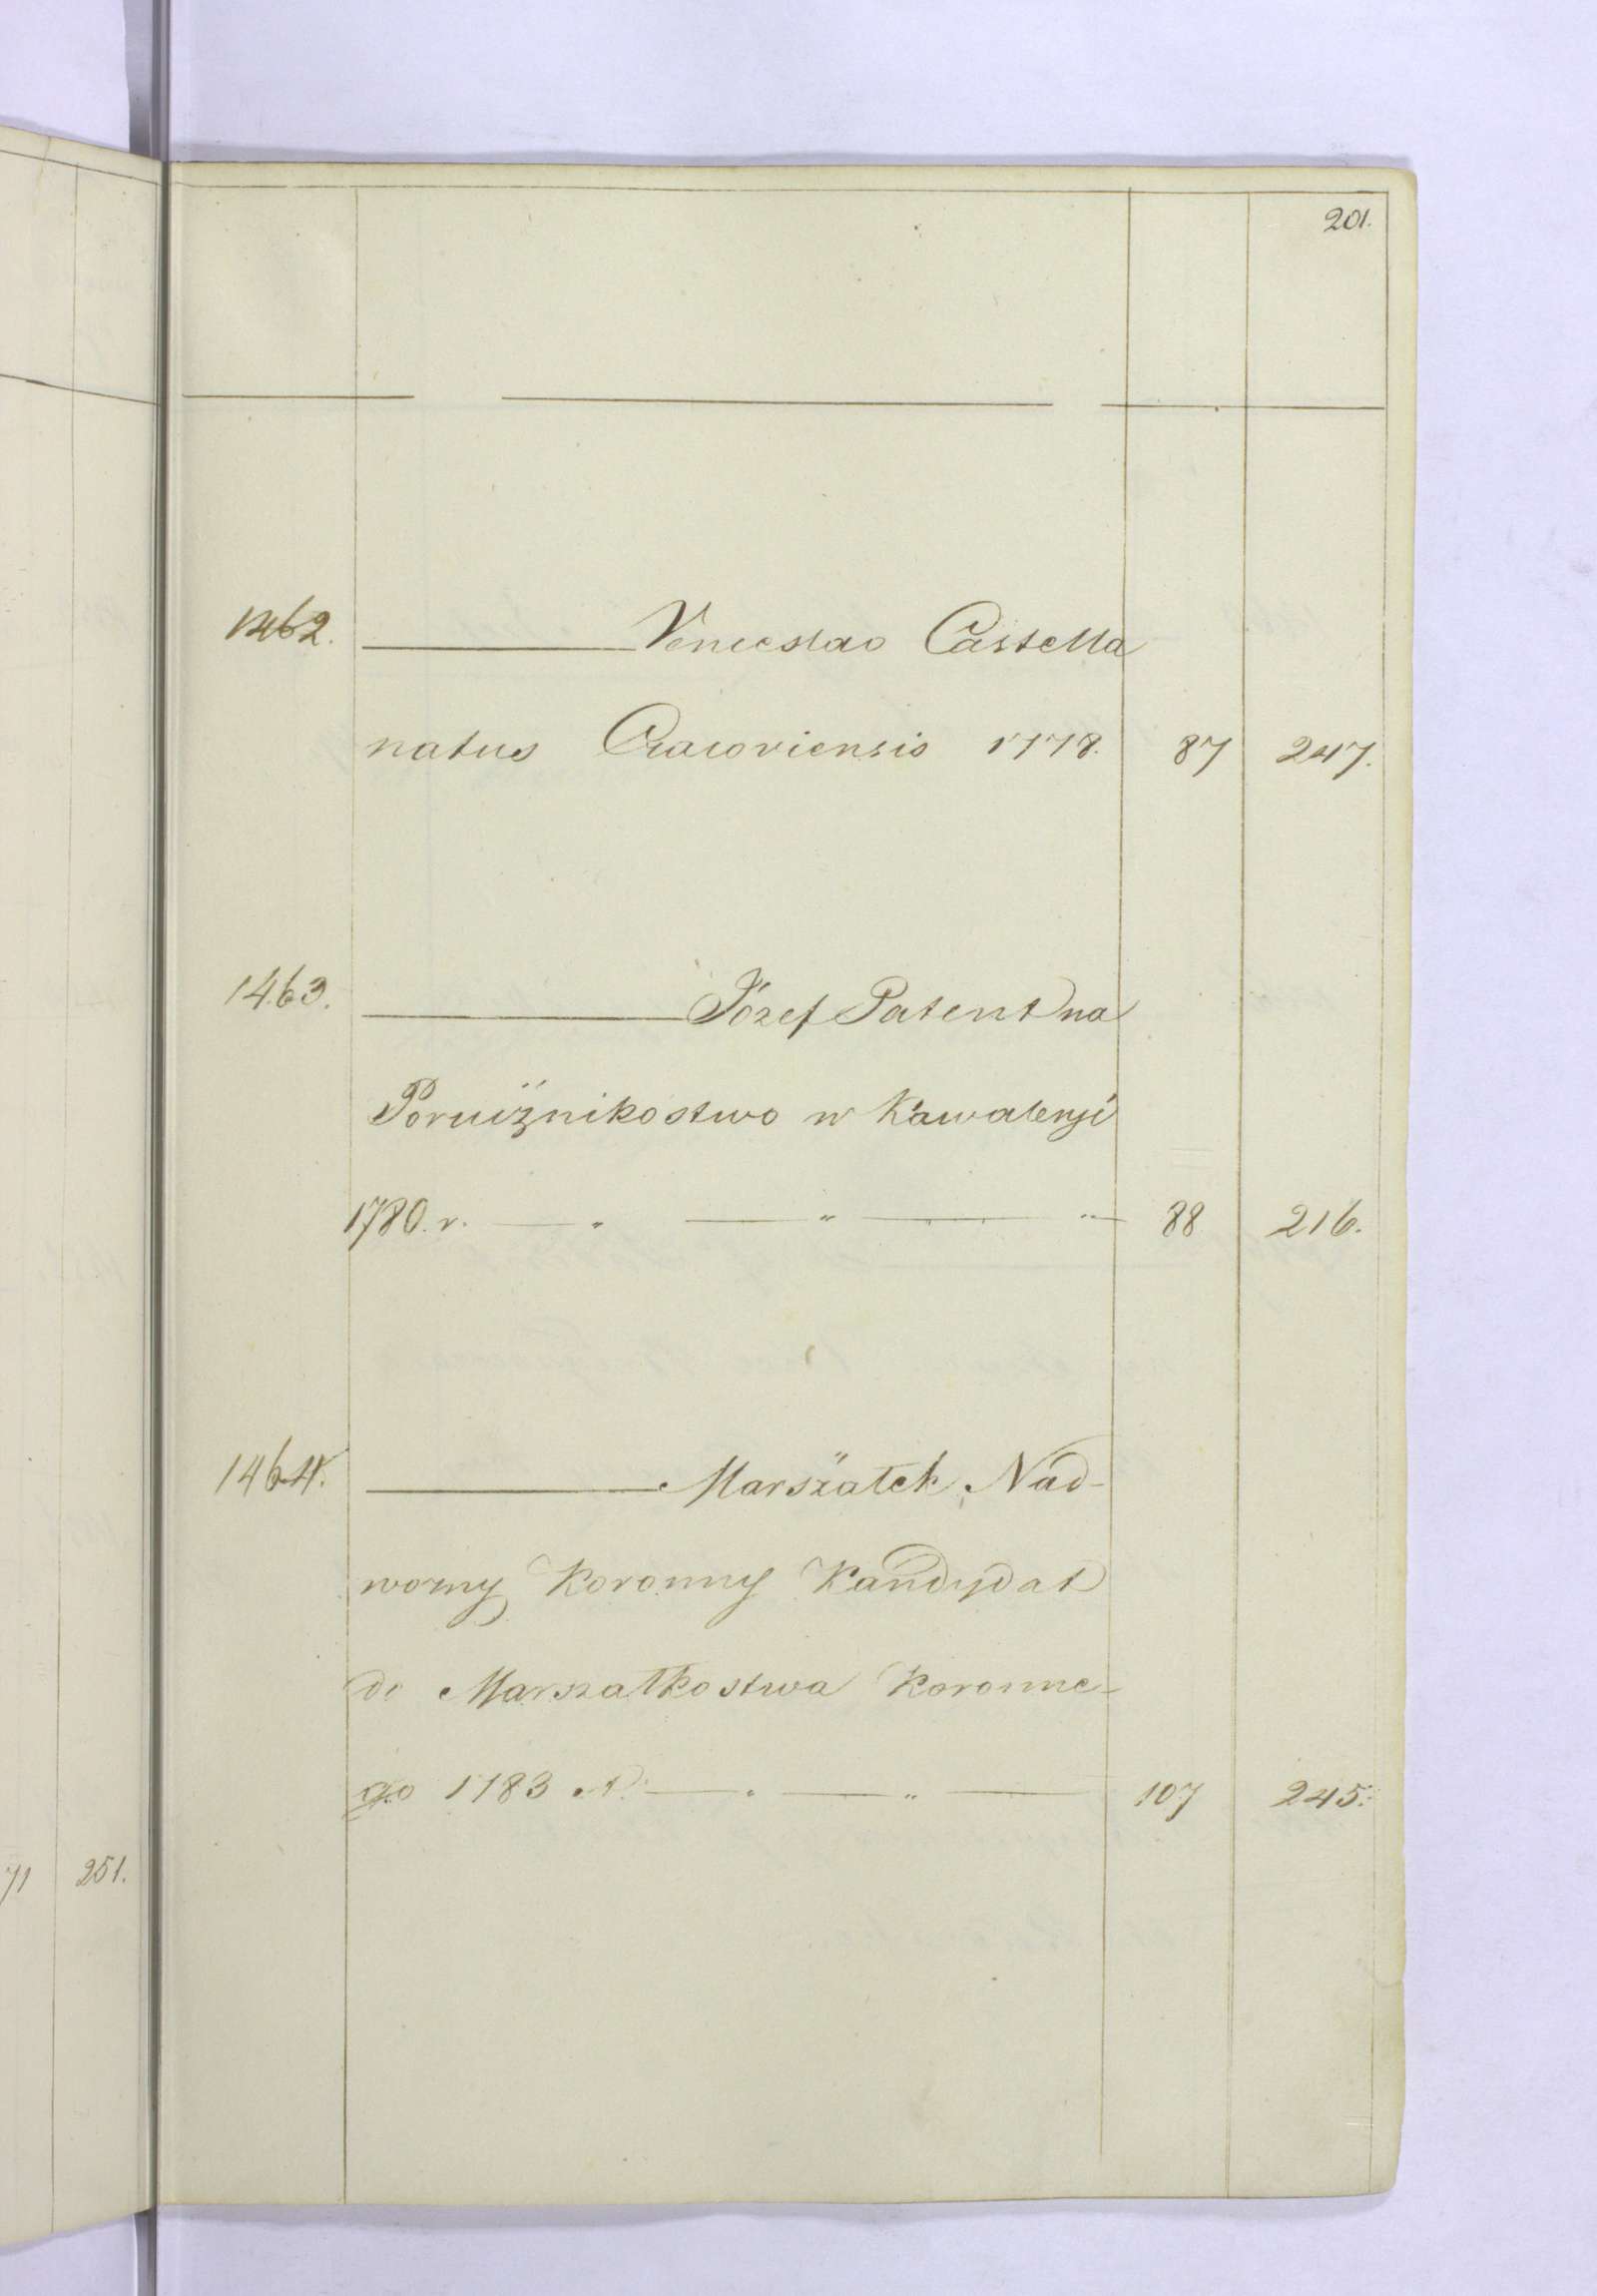 201.
1462. Venceslao Castella
natus Cracoviensis 1778. 87 247.
1463. Józef Patent na
Poruiżnikostwo w Kawaleryi
1780. r. 88 216.
1464. Marszałek Nad-
worny Koronny Kandydat
do Marszałkostwa Koronne-
go 1783 R. 107 245.
71 251.